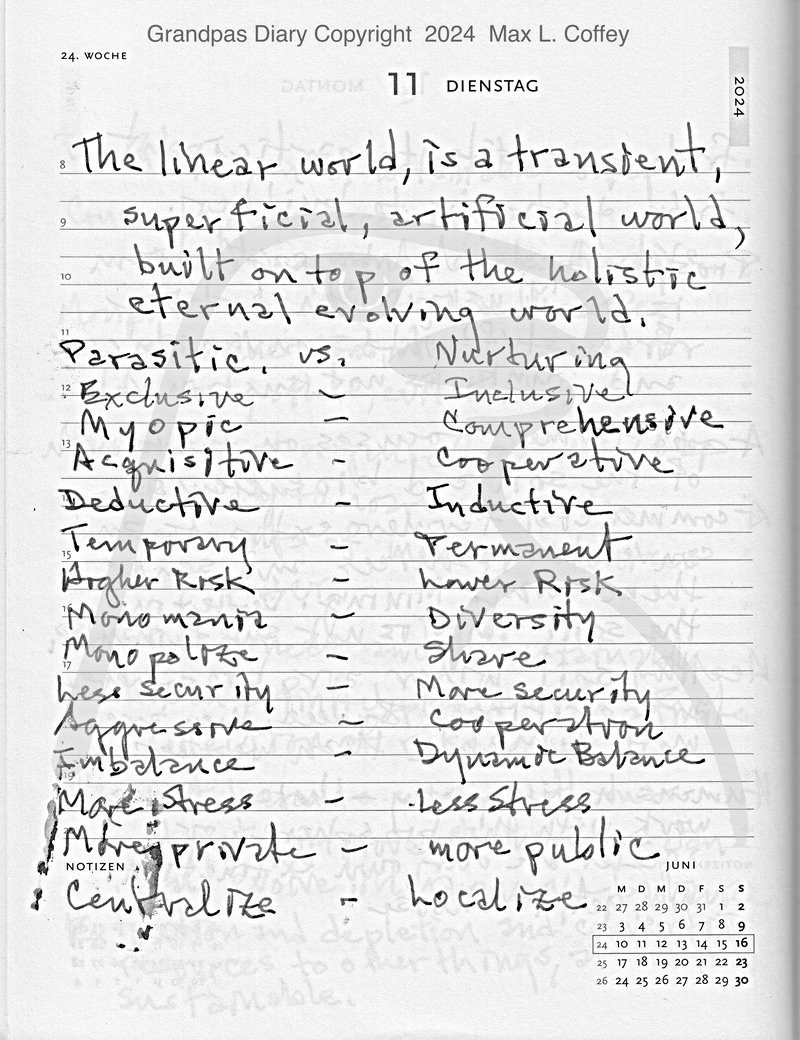 Grandpas Diary Copyright 2024 Max L. Coffey
24. WOCHE
11 DIENSTAG
2024
8 The linear world, is a transient,
9 superficial, artificial world,
10 built on top of the holistic
eternal evolving world.
11
Parasitic. vs. Nurturing
12 Exclusive - Inclusive
Myopic - Comprehensive
13
Acquisitive - Cooperative
Deductive - Inductive
Temporary - Permanent
15
Higher Risk - Lower Risk
Monomania - Diversity
Monopolize - Share
17
Less security - More security
Aggressive - Cooperation
Imbalance - Dynamic Balance
19
More Stress - Less Stress
More private - more public
NOTIZEN
Centralize - Localize
JUNI
M D M D F S S
22 27 28 29 30 31 1 2
23 3 4 5 6 7 8 9
24 10 11 12 13 14 15 16
25 17 18 19 20 21 22 23
26 24 25 26 27 28 29 30